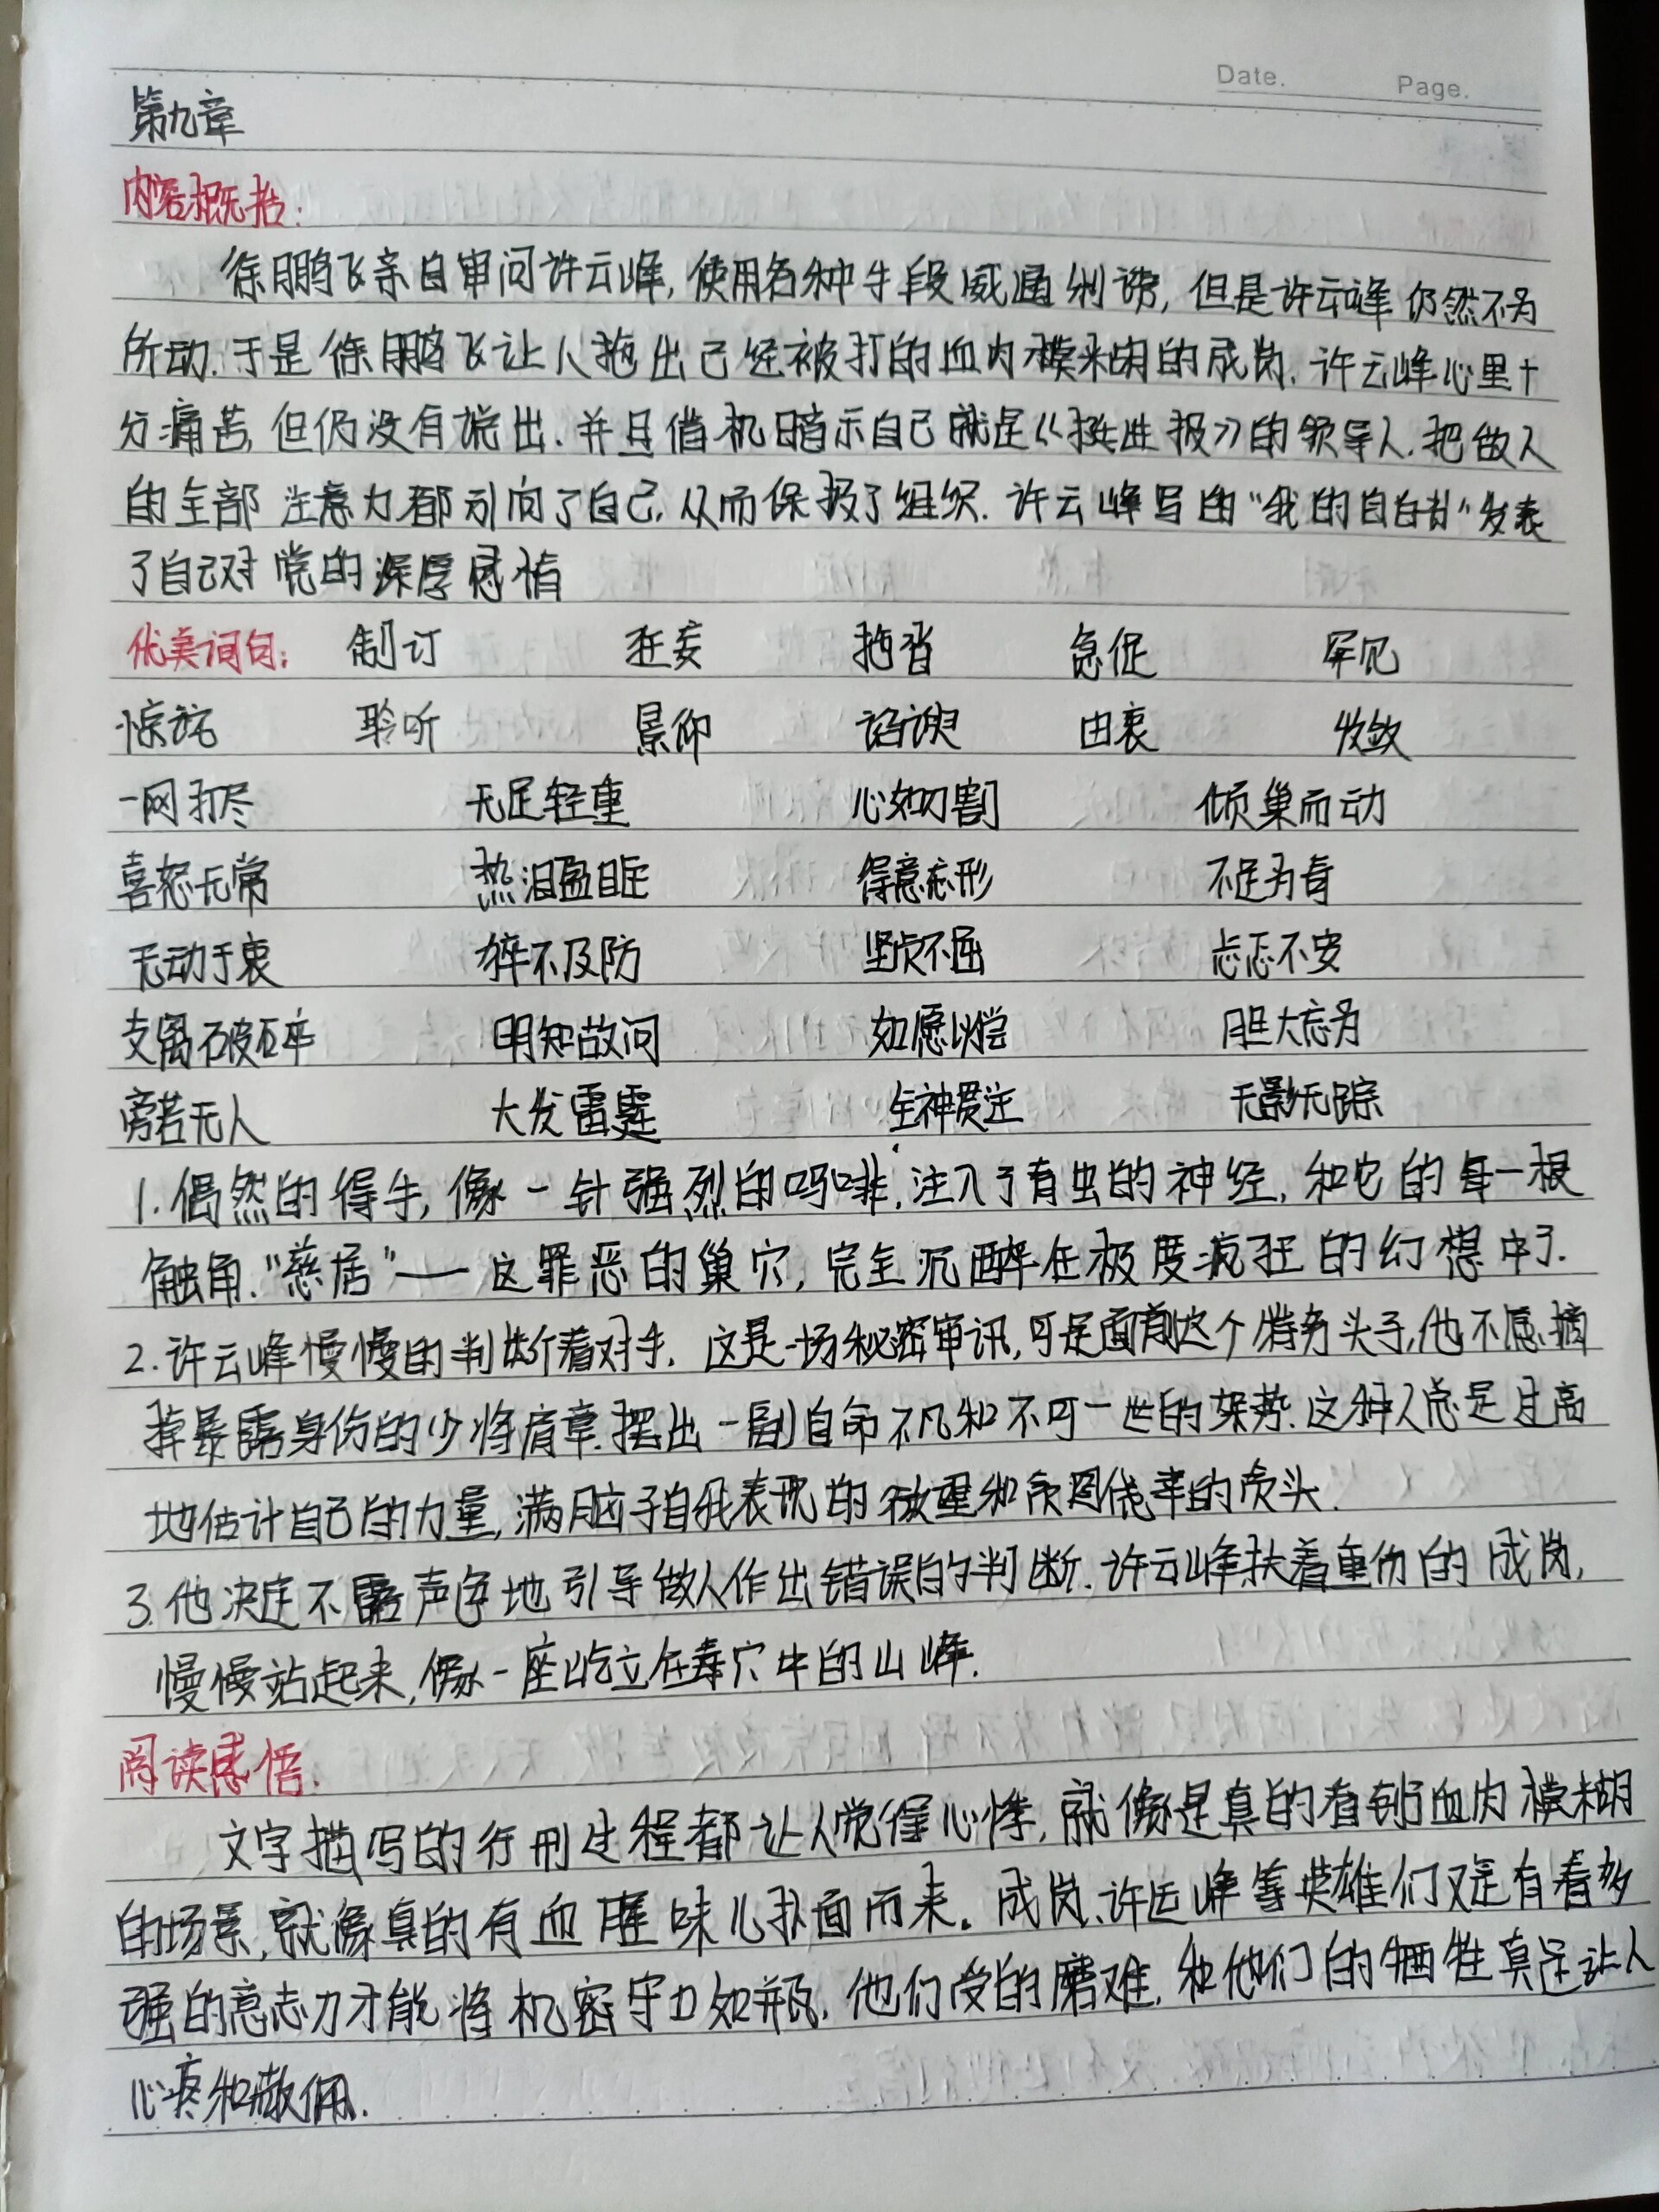 Date. Page.
第九章
内容概括:
徐鹏飞亲自审问许云峰,使用各种手段威逼利诱,但是许云峰仍然不为
所动.于是徐鹏飞让人拖出已经被打的血肉模糊的成岗.许云峰心里十
分痛苦,但仍没有说出.并且借机暗示自己就是《挺进报》的领导人.把敌人
的全部注意力都引向了自己,从而保护了组织.许云峰写的“我的自白书”发表
了自己对党的深厚感情
优美词句: 制订 狂妄 拖沓 急促 罕见
惊诧 聆听 景仰 谄谀 由衷 收敛
一网打尽 无足轻重 心如刀割 倾巢而动
喜怒无常 热泪盈眶 得意忘形 不足为奇
无动于衷 猝不及防 坚贞不屈 忐忑不安
支离破碎 明知故问 如愿以偿 胆大忘为
旁若无人 大发雷霆 全神贯注 无影无踪
1.偶然的得手,像一针强烈的吗啡,注入了有虫的神经,和它的每一根
触角.“慈居”——这罪恶的巢穴,完全沉醉在极度疯狂的幻想中了.
2.许云峰慢慢的判断着对手.这是一场秘密审讯,可是面前这个特务头子,他不愿摘
掉暴露身份的少将肩章.摆出一副自命不凡和不可一世的架势.这种人总是过高
地估计自己的力量,满脑子自我表现的 和 侥幸的念头.
3.他决定不露声色地引导敌人作出错误的判断.许云峰扶着重伤的成岗,
慢慢站起来,像一座屹立在毒穴中的山峰.
阅读感悟.
文字描写的行刑过程都让人觉得心悸,就像是真的看到血肉模糊
的场景,就像真的有血腥味儿扑面而来。成岗、许运峰等英雄们又是有着多
强的意志力才能将机密守口如瓶.他们受的磨难,和他们的牺牲真是让人
心疼和敬佩.